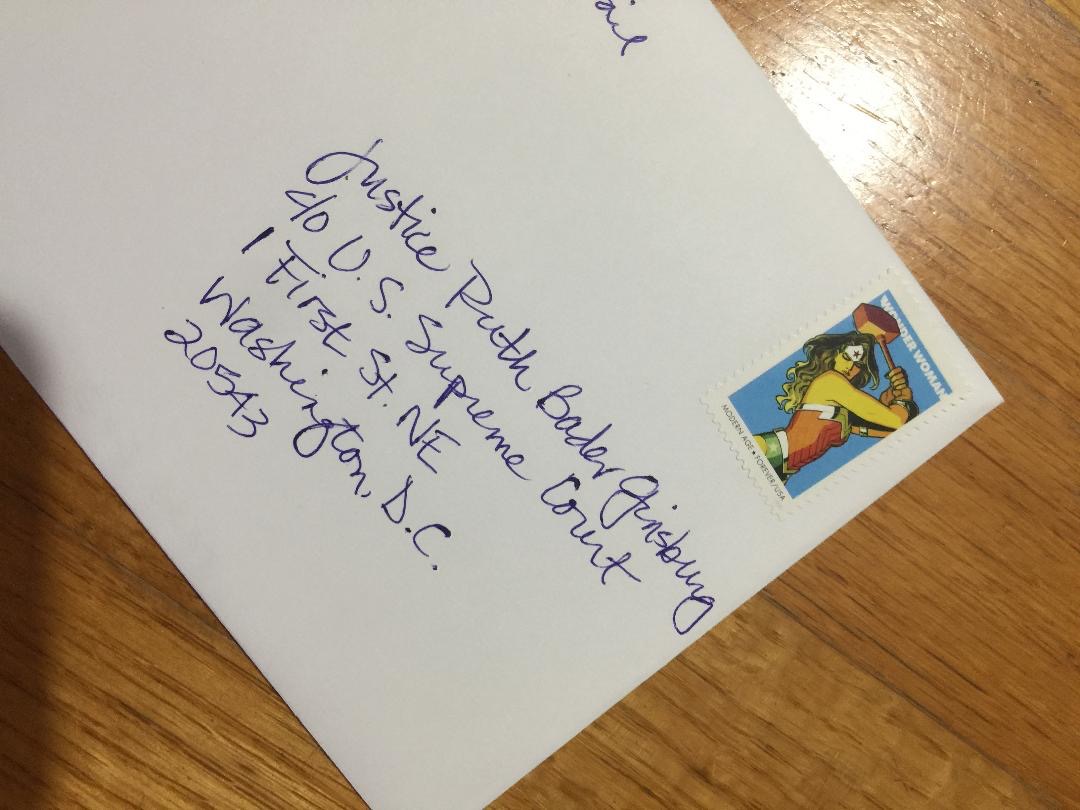 Justice Ruth Bader Ginsburg
c/o U.S. Supreme Court
1 First St. NE
Washington, D.C.
20543
WONDER WOMAN
MODERN AGE • FOREVER/USA